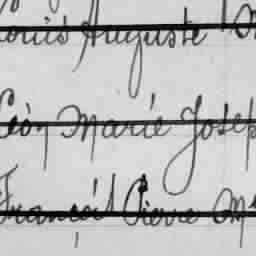 Louis Auguste
Léon Marie Josep
François Pierre M